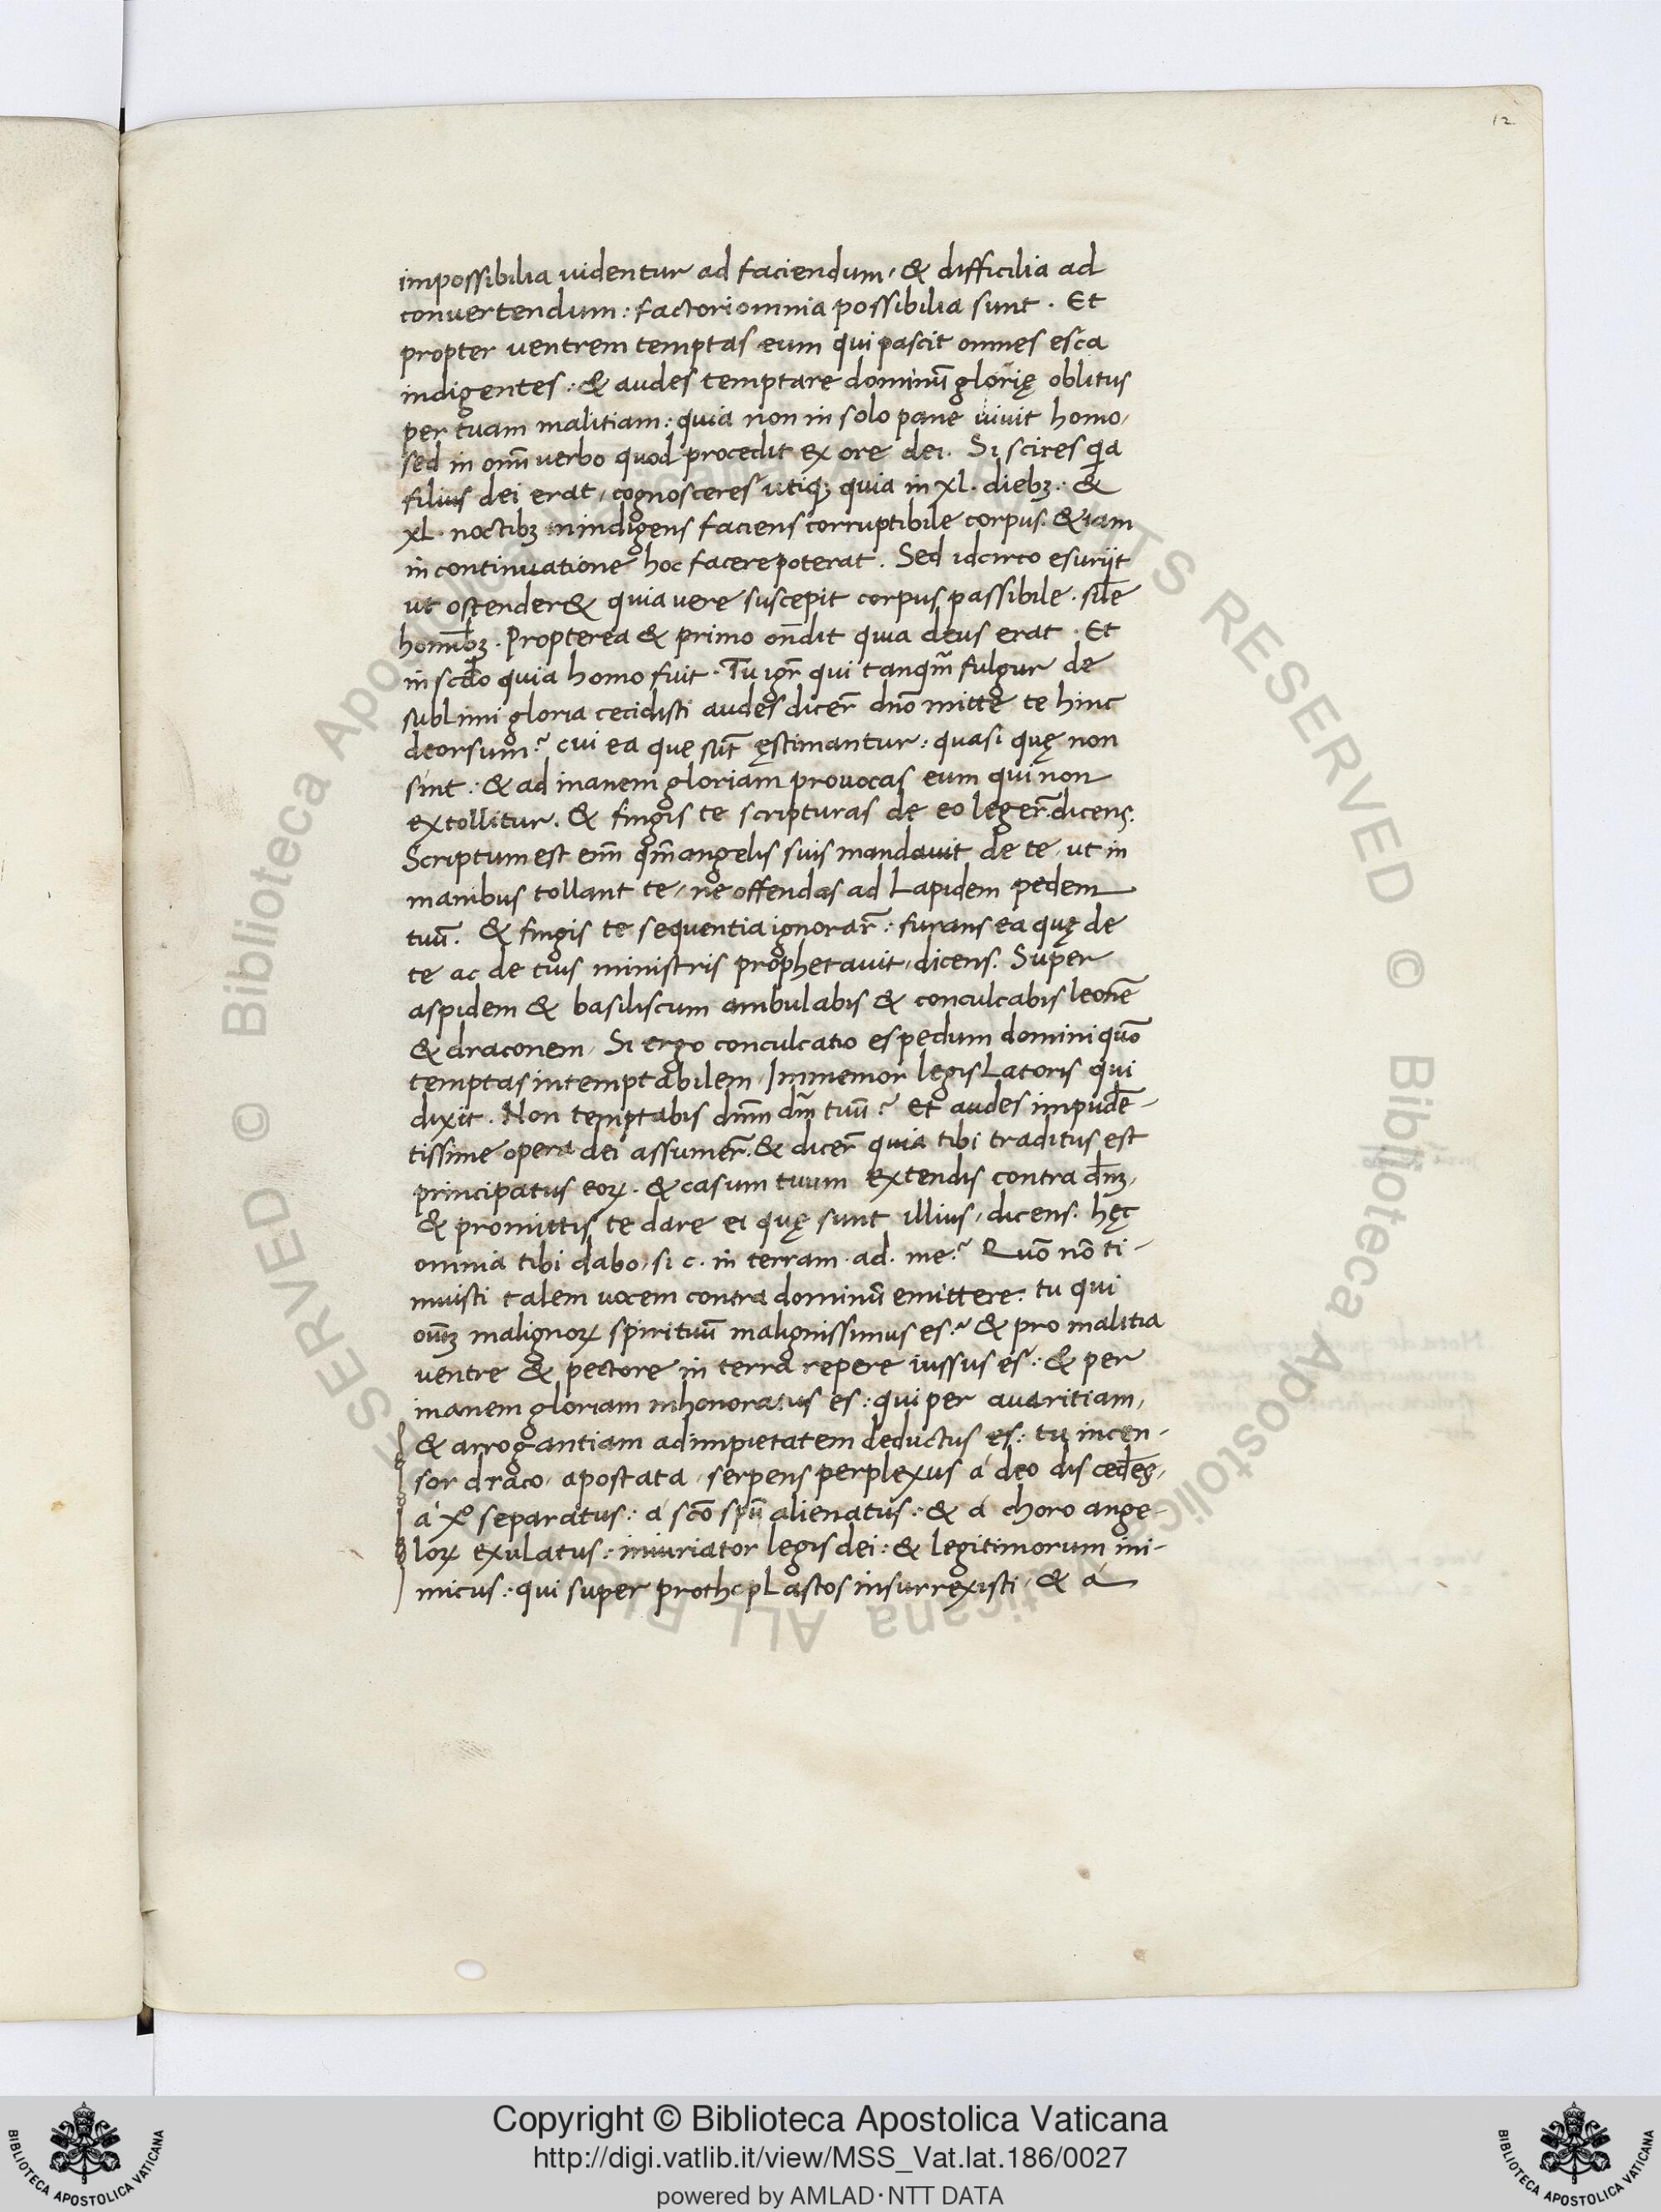 12
impossibilia uidentur ad faciendum, & difficilia ad
conuertendum: factori omnia possibilia sunt. Et
propter uentrem temptas eum qui pascit omnes esca
indigentes: & audes temptare dominū glorię oblitus
per tuam malitiam: quia non in solo pane uiuit homo,
sed in om̄i uerbo quod procedit ex ore dei. Si scires qa
filius dei erat, cognosceres utiqꝫ quia in xl. diebꝫ: &
xl. noctibꝫ inindigens faciens corruptibile corpus: & iam
in continuatione hoc facere poterat. Sed idcirco esuriit
ut ostender& quia uere suscepit corpus passibile. sil̄e
homībꝫ. Propterea & primo on̄dit quia deus erat. Et
in scd̄o quia homo fuit. Tu igr̄ qui tanqm̄ fulgur de
sublimi gloria cecidisti audes dicer̄ dn̄o mitte te hinc
deorsum? cui ea que sūt ęstimantur: quasi quę non
sint: & ad inanem gloriam prouocas eum qui non
extollitur. & fingis te scripturas de eo leger̄. dicens.
Scriptum est enī qm̄ angelis suis mandauit de te, ut in
manibus tollant te, ne offendas ad Lapidem pedem
tuū. & fingis te sequentia ignorar̄: furans ea quę de
te ac de tuis ministris prophetauit, dicens. Super
aspidem & basiliscum ambulabis & conculcabis leonē
& draconem, Si ergo conculcatio es pedum domini quō
temptas intemptabilem, Immemor legisLatoris qui
dixit. Non temptabis dn̄m dm̄ tuū? Et audes impudē-
tissime opera dei assumer̄. & dicer̄ quia tibi traditus est
principatus eoꝝ. & casum tuum extendis contra dn̄ꝫ,
& promittis te dare ei quę sunt illius, dicens. hęc
omnia tibi dabo, si c. in terram. ad. me? Quō nō ti-
muisti talem uocem contra dominū emittere: tu qui
om̄ꝫ malignoꝝ spirituū malignissimus es? & pro malitia
uentre & pectore in terra repere iussus es: & per
inanem gloriam inhonoratus es: qui per auaritiam,
& arrogantiam ad impietatem deductus es: tu incen-
sor draco, apostata, serpens perplexus á deo discedēs,
á xp̄o separatus: á scō spū alienatus: & á choro ange-
loꝝ exulatus: iniuriator legis dei: & legitimorum ini-
micus: qui super prothopLastos insurrexisti, & á
© Biblioteca Apostolica Vaticana ALL RIGHTS RESERVED
Copyright © Biblioteca Apostolica Vaticana
http://digi.vatlib.it/view/MSS_Vat.lat.186/0027
powered by AMLAD·NTT DATA
BIBLIOTECA APOSTOLICA VATICANA
BIBLIOTECA APOSTOLICA VATICANA